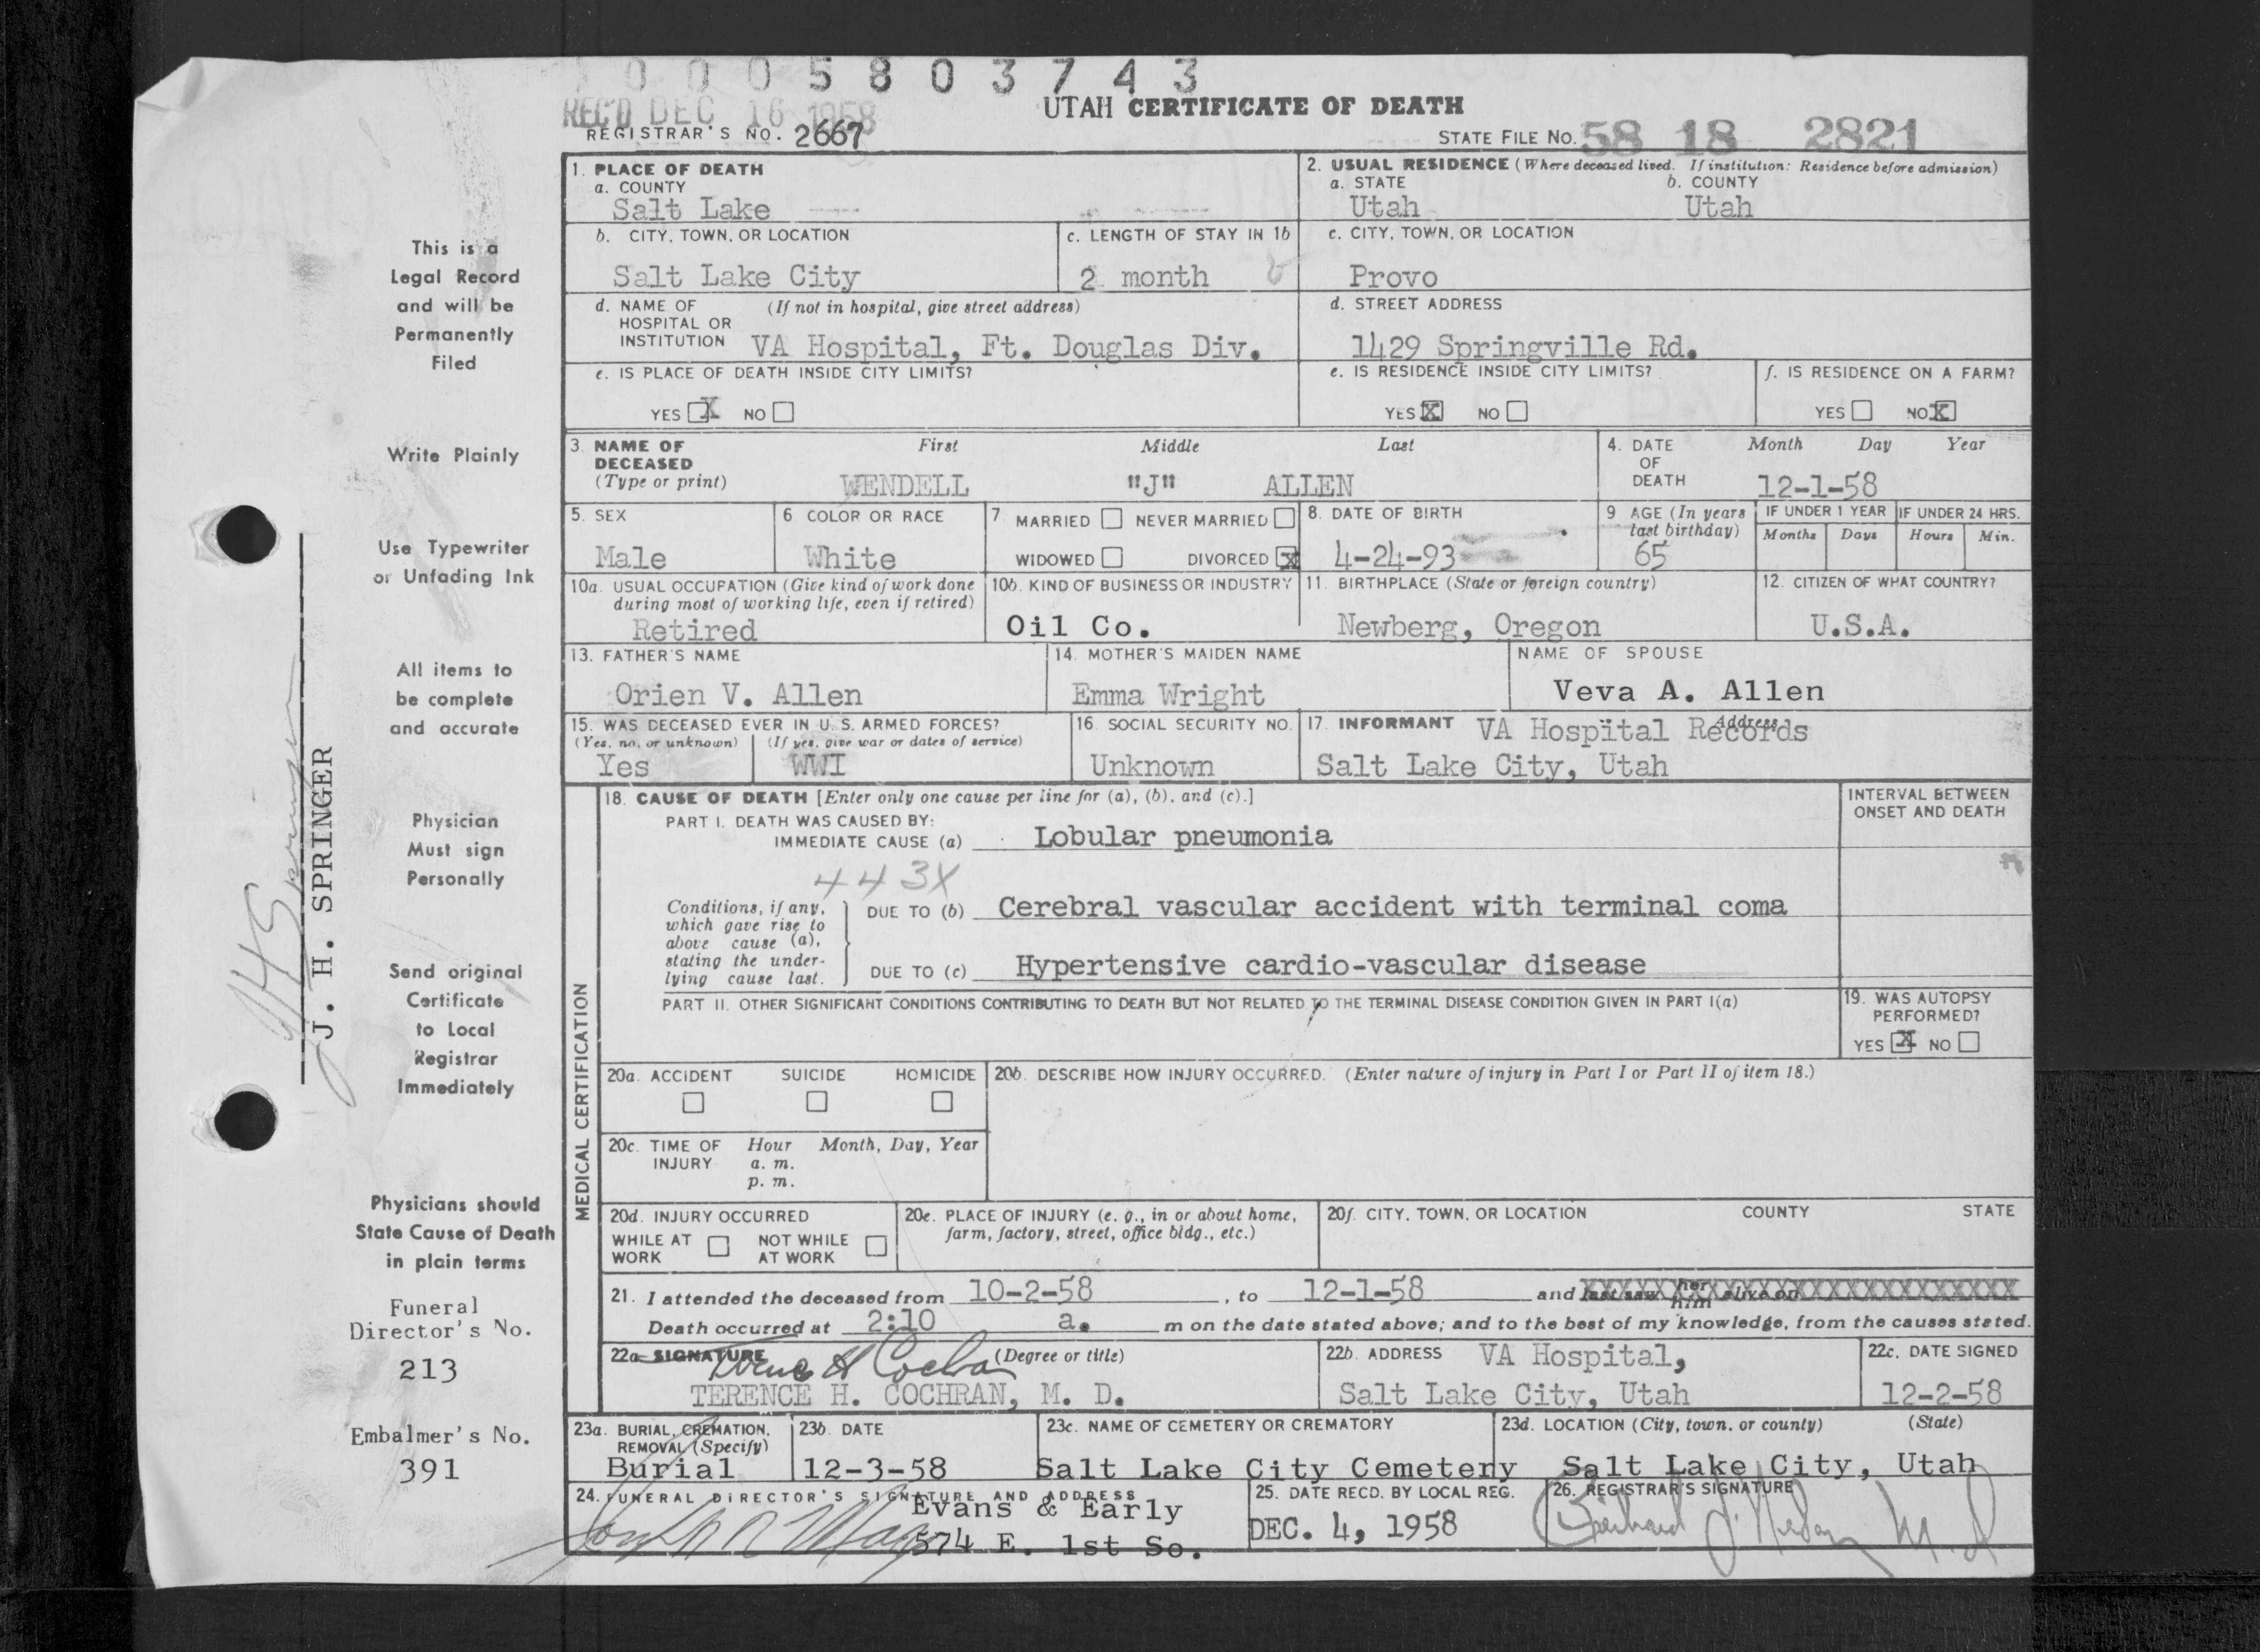 0005803743
REC'D DEC 16 1958
UTAH CERTIFICATE OF DEATH
REGISTRAR'S NO. 2667
STATE FILE NO. 58 18 2821
1. PLACE OF DEATH
a. COUNTY
Salt Lake
2. USUAL RESIDENCE (Where deceased lived. If institution: Residence before admission)
a. STATE b. COUNTY
Utah Utah
b. CITY, TOWN, OR LOCATION
Salt Lake City
c. LENGTH OF STAY IN 1b
2 month
c. CITY, TOWN, OR LOCATION
Provo
d. NAME OF (If not in hospital, give street address)
HOSPITAL OR
INSTITUTION VA Hospital, Ft. Douglas Div.
d. STREET ADDRESS
1429 Springville Rd.
e. IS PLACE OF DEATH INSIDE CITY LIMITS?
YES X NO
e. IS RESIDENCE INSIDE CITY LIMITS?
YES X NO
f. IS RESIDENCE ON A FARM?
YES NO X
3. NAME OF DECEASED (Type or print)
First Middle Last
WENDELL "J" ALLEN
4. DATE OF DEATH
Month Day Year
12-1-58
5. SEX
Male
6 COLOR OR RACE
White
7 MARRIED NEVER MARRIED
WIDOWED DIVORCED X
8. DATE OF BIRTH
4-24-93
9 AGE (In years last birthday)
65
IF UNDER 1 YEAR
Months Days
IF UNDER 24 HRS.
Hours Min.
10a. USUAL OCCUPATION (Give kind of work done
during most of working life, even if retired)
Retired
10b. KIND OF BUSINESS OR INDUSTRY
Oil Co.
11. BIRTHPLACE (State or foreign country)
Newberg, Oregon
12. CITIZEN OF WHAT COUNTRY?
U.S.A.
13. FATHER'S NAME
Orien V. Allen
14. MOTHER'S MAIDEN NAME
Emma Wright
NAME OF SPOUSE
Veva A. Allen
15. WAS DECEASED EVER IN U.S. ARMED FORCES?
(Yes, no, or unknown) (If yes, give war or dates of service)
Yes WWI
16. SOCIAL SECURITY NO.
Unknown
17. INFORMANT Address
VA Hospital Records
Salt Lake City, Utah
MEDICAL CERTIFICATION
18. CAUSE OF DEATH [Enter only one cause per line for (a), (b), and (c).]
PART I. DEATH WAS CAUSED BY:
IMMEDIATE CAUSE (a) Lobular pneumonia
443X
Conditions, if any,
which gave rise to
above cause (a),
stating the under-
lying cause last.
DUE TO (b) Cerebral vascular accident with terminal coma
DUE TO (c) Hypertensive cardio-vascular disease
INTERVAL BETWEEN
ONSET AND DEATH
PART II. OTHER SIGNIFICANT CONDITIONS CONTRIBUTING TO DEATH BUT NOT RELATED TO THE TERMINAL DISEASE CONDITION GIVEN IN PART I(a)
19. WAS AUTOPSY
PERFORMED?
YES X NO
20a. ACCIDENT SUICIDE HOMICIDE
20b. DESCRIBE HOW INJURY OCCURRED. (Enter nature of injury in Part I or Part II of item 18.)
20c. TIME OF INJURY
Hour Month, Day, Year
a. m.
p. m.
20d. INJURY OCCURRED
WHILE AT WORK NOT WHILE AT WORK
20e. PLACE OF INJURY (e. g., in or about home,
farm, factory, street, office bldg., etc.)
20f. CITY, TOWN, OR LOCATION COUNTY STATE
21. I attended the deceased from 10-2-58, to 12-1-58 and last saw her him alive on XXXXXXXXXXXXXXXXXXXXXXXX
Death occurred at 2:10 a. m on the date stated above; and to the best of my knowledge, from the causes stated.
22a SIGNATURE (Degree or title)
Terence H Cochran
TERENCE H. COCHRAN, M. D.
22b. ADDRESS VA Hospital,
Salt Lake City, Utah
22c. DATE SIGNED
12-2-58
23a. BURIAL, CREMATION,
REMOVAL (Specify)
Burial
23b. DATE
12-3-58
23c. NAME OF CEMETERY OR CREMATORY
Salt Lake City Cemetery
23d. LOCATION (City, town, or county) (State)
Salt Lake City, Utah
24. FUNERAL DIRECTOR'S SIGNATURE AND ADDRESS
Evans & Early
574 E. 1st So.
25. DATE RECD. BY LOCAL REG.
DEC. 4, 1958
26. REGISTRAR'S SIGNATURE
This is a
Legal Record
and will be
Permanently
Filed
Write Plainly
Use Typewriter
or Unfading Ink
All items to
be complete
and accurate
Physician
Must sign
Personally
Send original
Certificate
to Local
Registrar
Immediately
Physicians should
State Cause of Death
in plain terms
Funeral
Director's No.
213
Embalmer's No.
391
J H Springer
J. H. SPRINGER